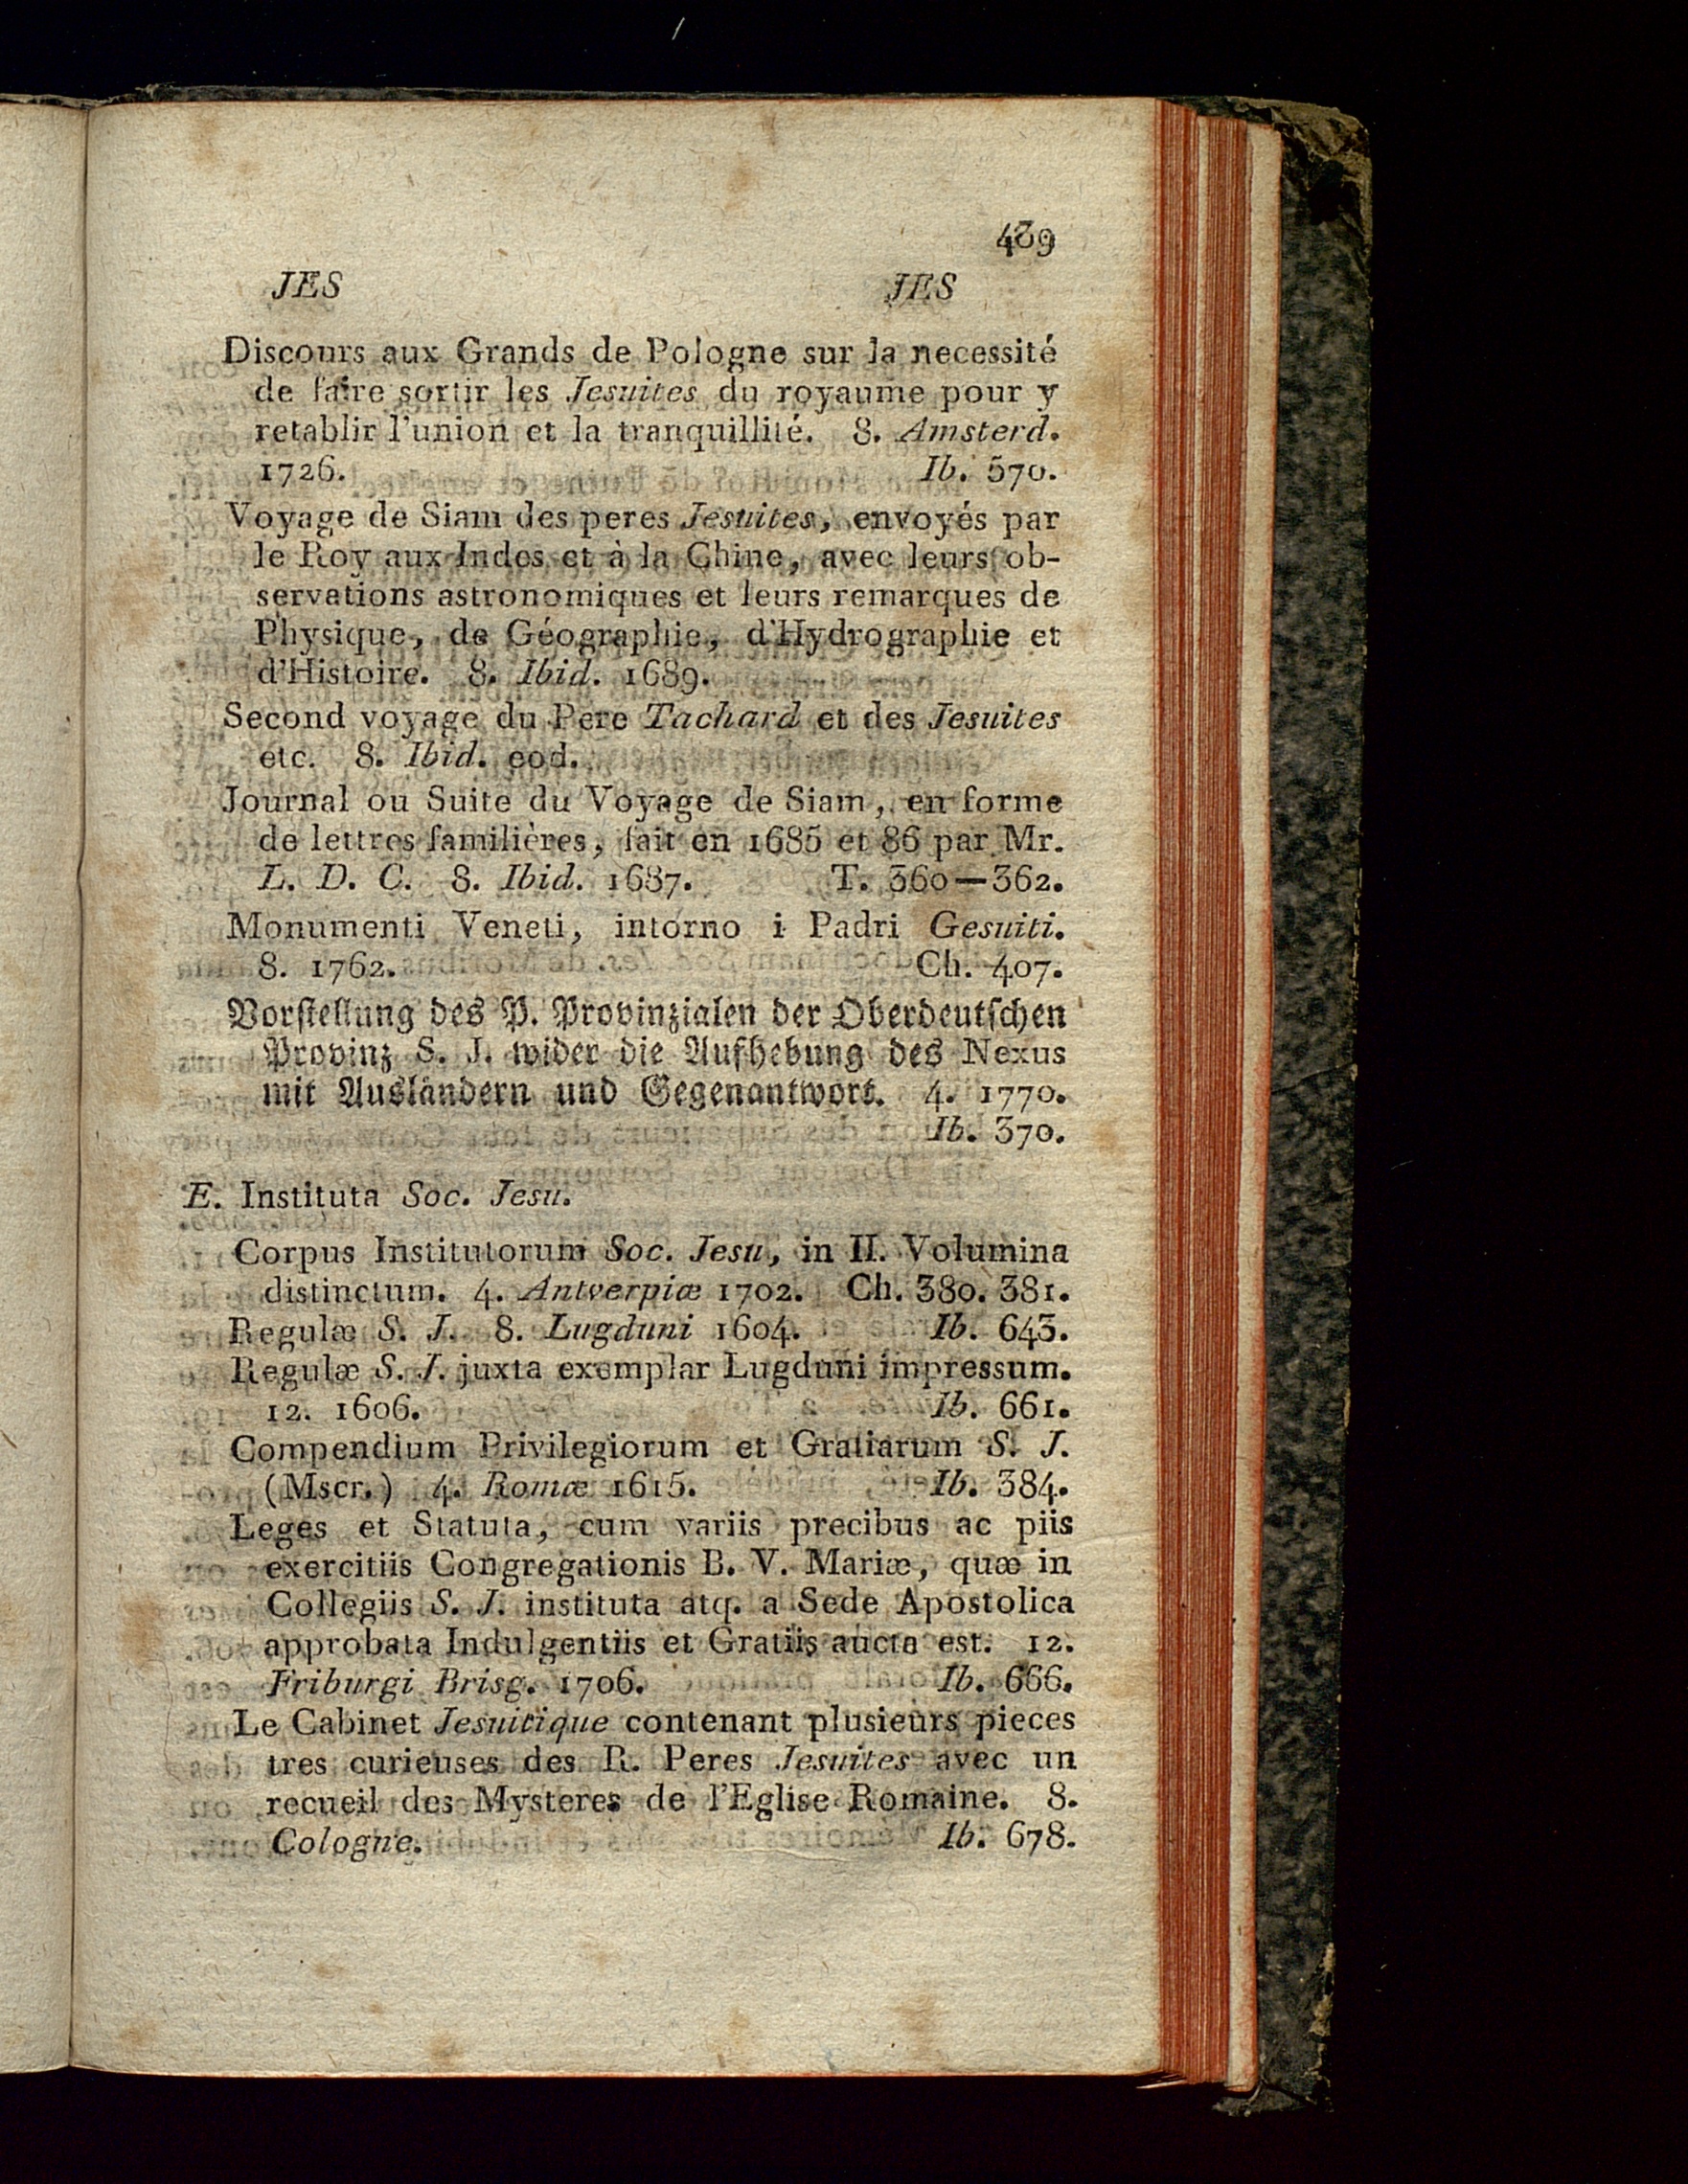 489
JES JES
Discours aux Grands de Pologne sur la necessité
de faire sortir les Jesuites du royaume pour y
retablir l'union et la tranquillité. 8. Amsterd.
1726. Ib. 570.
Voyage de Siam des peres Jesuites, envoyés par
le Roy aux Indes et à la Chine, avec leurs ob-
servations astronomiques et leurs remarques de
Physique, de Géographie, d'Hydrographie et
d'Histoire. 8. Ibid. 1689.
Second voyage du Pere Tachard et des Jesuites
etc. 8. Ibid. eod.
Journal ou Suite du Voyage de Siam, en forme
de lettres familières, fait en 1685 et 86 par Mr.
L. D. C. 8. Ibid. 1687. T. 360—362.
Monumenti Veneti, intorno i Padri Gesuiti.
8. 1762. Ch. 407.
Vorstellung des P. Provinzialen der Oberdeutschen
Provinz S. J. wider die Aufhebung des Nexus
mit Ausländern und Gegenantwort. 4. 1770.
Ib. 370.
E. Instituta Soc. Jesu.
Corpus Institutorum Soc. Jesu, in II. Volumina
distinctum. 4. Antverpiæ 1702. Ch. 380. 381.
Regulæ S. J. 8. Lugduni 1604. Ib. 643.
Regulæ S. J. juxta exemplar Lugduni impressum.
12. 1606. Ib. 661.
Compendium Privilegiorum et Gratiarum S. J.
(Mscr.) 4. Romæ 1615. Ib. 384.
Leges et Statuta, cum variis precibus ac piis
exercitiis Congregationis B. V. Mariæ, quæ in
Collegiis S. J. instituta atq. a Sede Apostolica
approbata Indulgentiis et Gratiis aucta est. 12.
Friburgi Brisg. 1706. Ib. 666.
Le Cabinet Jesuitique contenant plusieurs pieces
tres curieuses des R. Peres Jesuites avec un
recueil des Mysteres de l'Eglise Romaine. 8.
Cologne. Ib. 678.